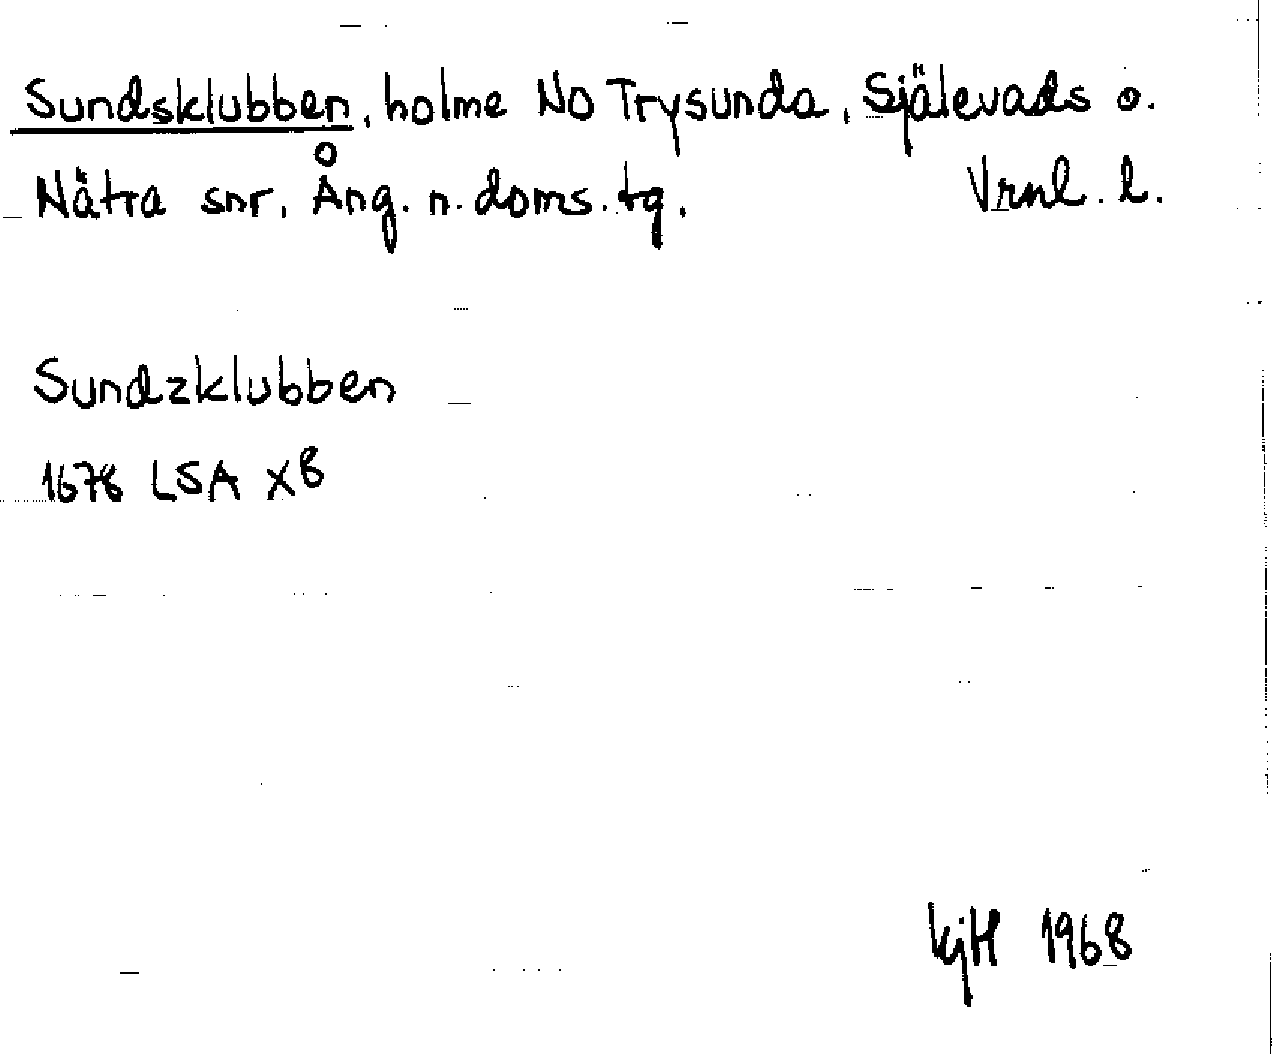 Sundsklubben, holme NO Trysunda, Själevads o.
Nätra snr, Ång. n. doms. tg. Vrnl. l.
Sundzklubben
1678 LSA X8
KjH 1968